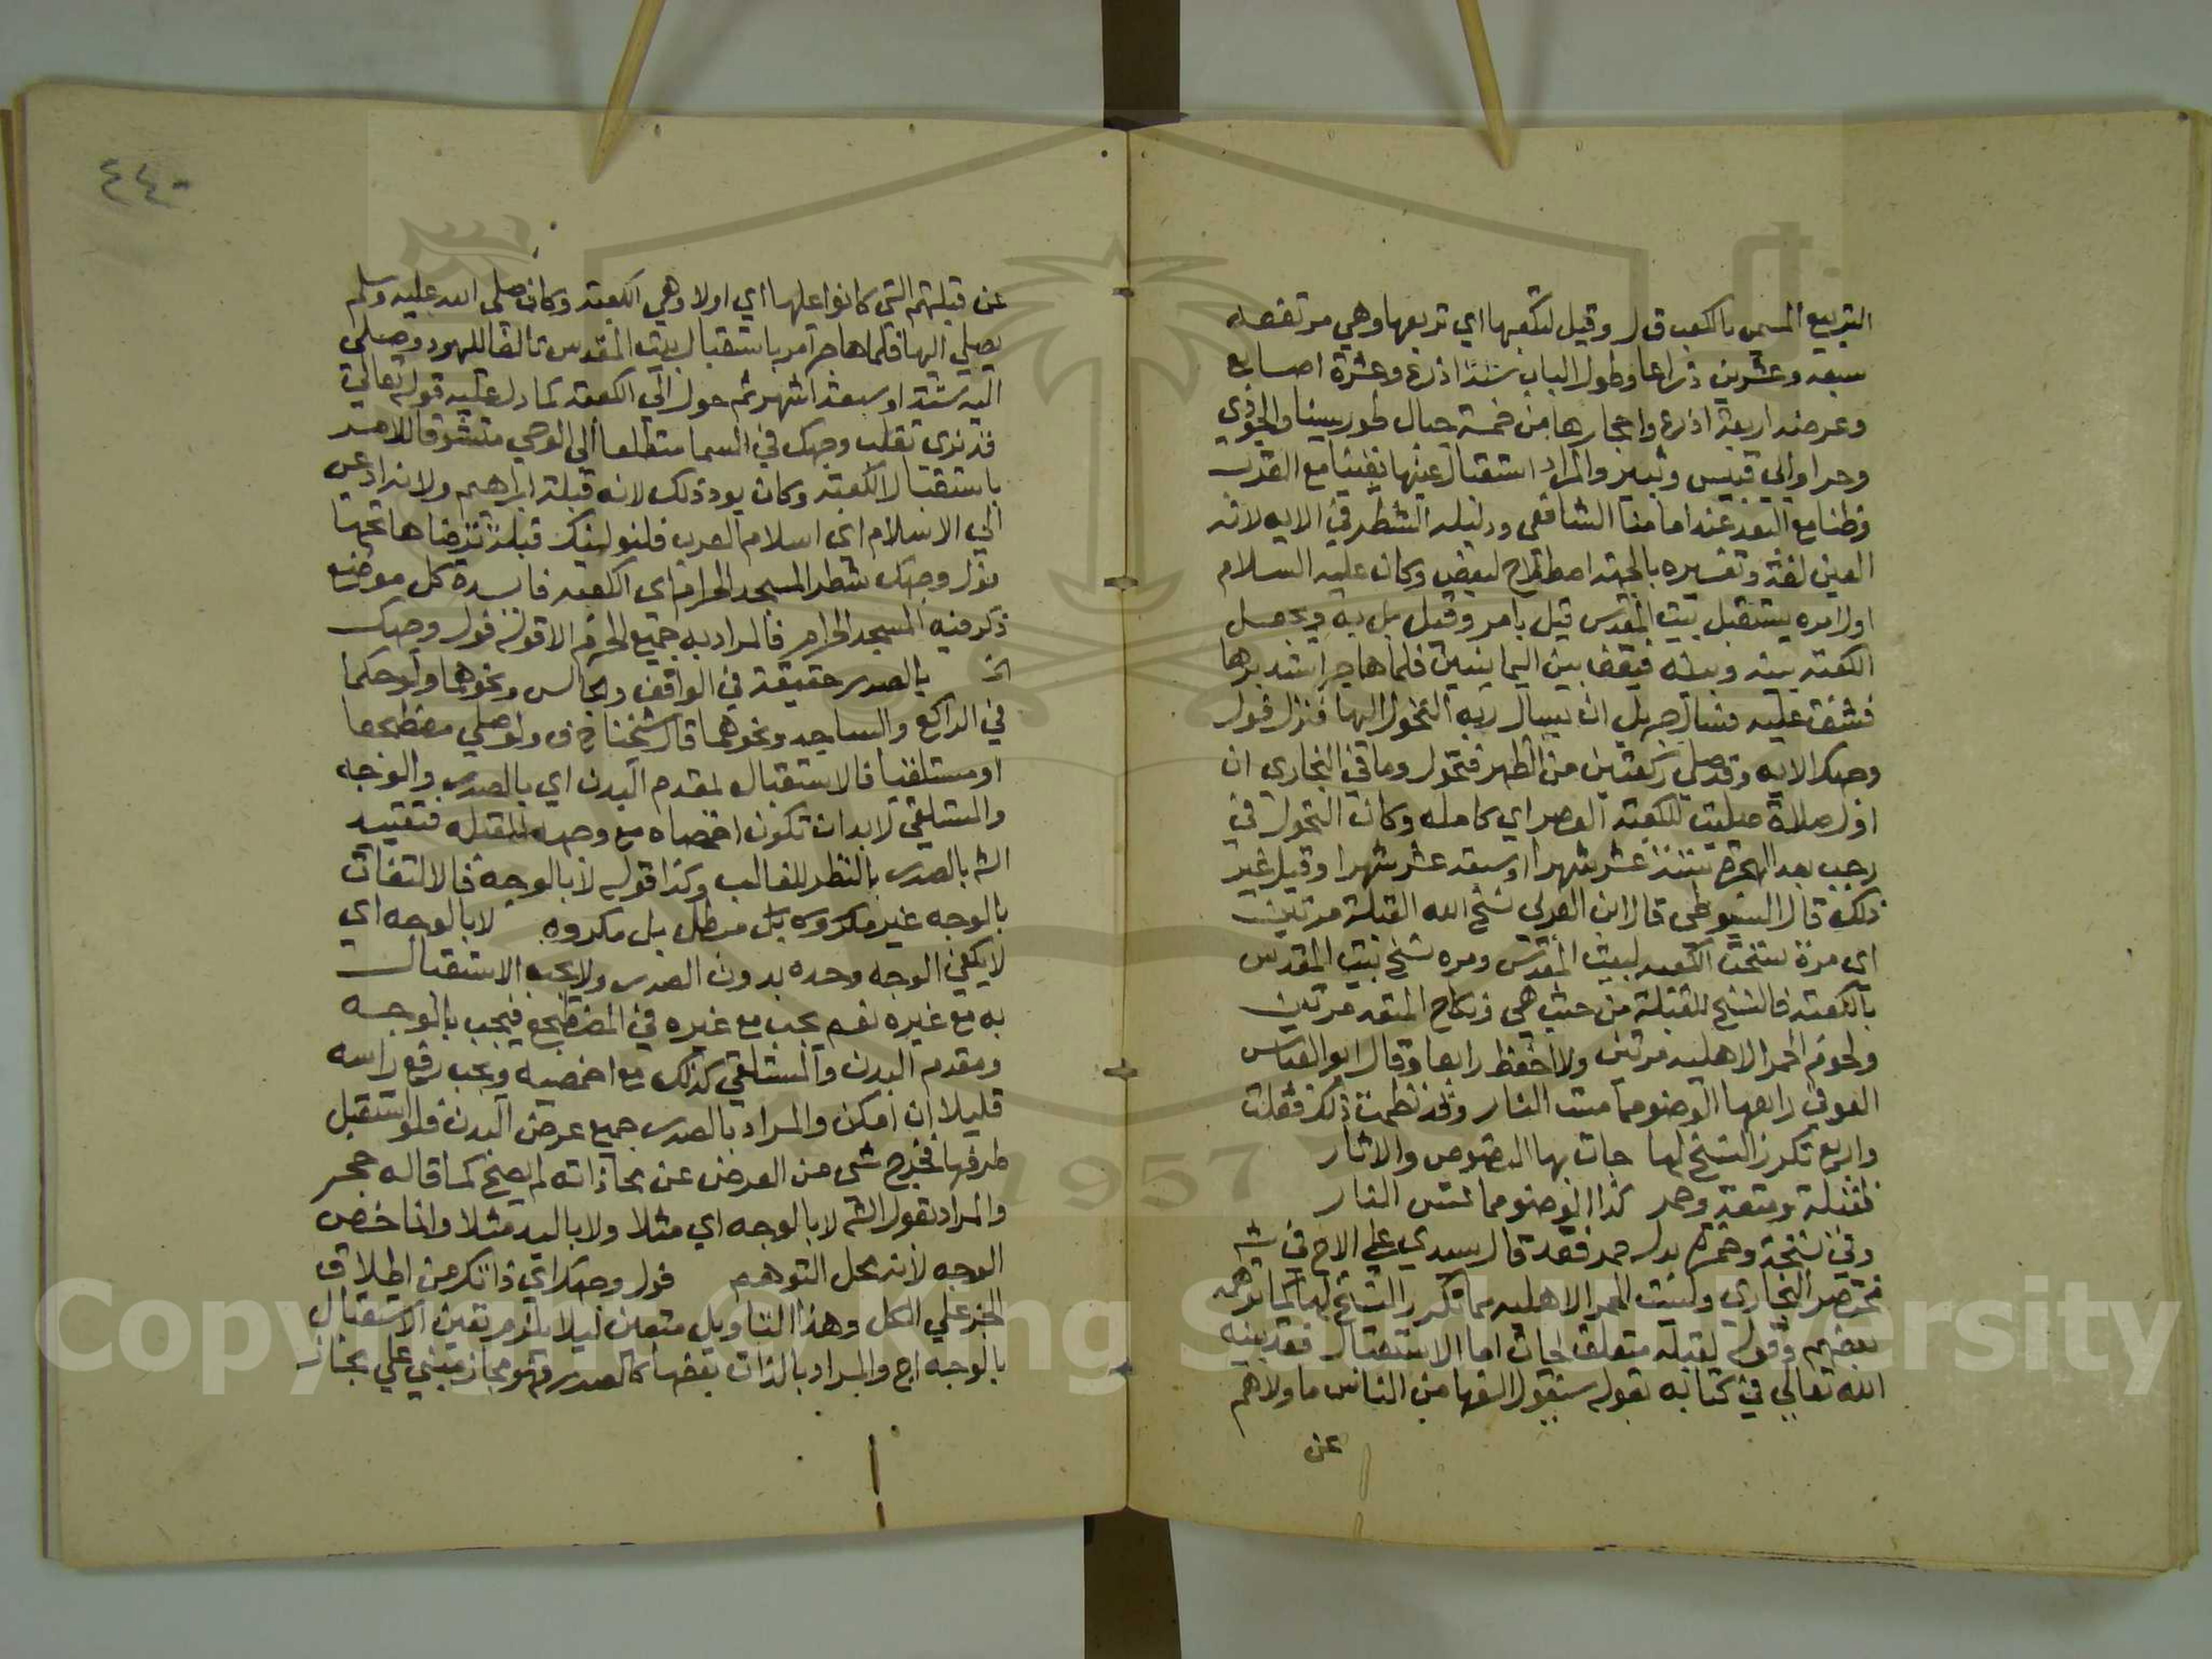 التربيع المسمى بالكعب ق ل وقيل لتكعبها اي تربعها وهي مرتفعه
سبعه وعشرين ذراعا وطول الباب ستة اذرع وعشرة اصابع
وعرضه اربعة اذرع واحجارها من خمسة جبال طور سينا والجودي
وحرا وابي قبيس وثبير والمراد استقبال عينها يقينا مع القرب
وظنا مع البعد عند امامنا الشافعي ودليله الشطر في الايه لانه
العين لغة وتفسيره بالجهة اصطلاح لبعض وكان عليه السلام
اول امره يستقبل بيت المقدس قيل بامر وقيل برايه ويجعل
الكعبه بينه وبينه فيقف بين اليمانيين فلما هاجر استدبرها
فشق عليه فسال جبريل ان يسال ربه التحول اليها فنزل فول
وجهك الايه وقد صلي ركعتين من الظهر فتحول وما في البخاري ان
اول صلاة صليت للكعبه العصر اي كامله وكان التحول في
رجب بعد الهجره بستة عشر شهرا او سبعة عشر شهرا وقيل غير
ذلك قال السيوطي قال ابن العربي نسخ الله القبلة مرتين
اي مرة نسخت الكعبه لبيت المقدس ومره نسخ بيت المقدس
بالكعبه فالنسخ للقبلة من حيث هي ونكاح المتعه مرتين
ولحوم الحمر الاهليه مرتين ولا احفظ رابعا وقال ابو العباس
العوفي رابعها الوضو مما مست النار وقد نظمت ذلك فقلت
واربع تكرر النسخ لها جات بها النصوص والاثار
لقبلة ومتعة وحمر كذا الوضو مما تمس النار
وفي نسخة وخمرة بدل حمر فقد قال سيدي علي الاج في شه
مختصر البخاري وليست الحمر الاهليه مما تكرر النسخ لها كما توهمه
بعضهم وقوله لقبله متعلق بجات اما الاستقبال فقد بينه
الله تعالي في كتابه بقوله سيقول السفها من الناس ما ولاهم
عن
٤٤٠
عن قبلتهم التي كانوا عليها اي اولا وهي الكعبة وكان صلى الله عليه وسلم
يصلي اليها فلما هاجر امر باستقبال بيت المقدس تالفا لليهود وصلى
اليه ستة او سبعة اشهر ثم حول الي الكعبة كما دل عليه قوله تعالي
قد نرى تقلب وجهك في السما متطلعا الي الوحي متشوقا للامر
باستقبال الكعبة وكان يود ذلك لانه قبلة ابراهيم ولانه ادعى
الي الاسلام اي اسلام العرب فلنولينك قبلة ترضاها تحبها
فول وجهك شطر المسجد الحرام اي الكعبه فايدة كل موضع
ذكر فيه المسجد الحرام فالمراد به جميع الحرم الا قوله فول وجهك
الخ بالصدر حقيقة في الواقف والجالس ونحوهما ولو حكما
في الراكع والساجد ونحوهما قال شيخنا ح ف ولو صلي مضطجعا
او مستلقيا فالاستقبال بمقدم البدن اي بالصدر والوجه
والمستلقي لابد ان تكون اخمصاه مع وجهه للقبله فتقييد
الش بالصدر بالنظر للغالب وكذا قوله لا بالوجه فالالتفات
بالوجه غير مكروه بل مبطل بل مكروه لا بالوجه اي
لا يكفي الوجه وحده بدون الصدر ولا يجب الاستقبال
به مع غيره نعم يجب مع غيره في المضطجع فيجب بالوجه
ومقدم البدن والمستلقي كذلك مع اخمصيه ويجب رفع راسه
قليلا ان امكن والمراد بالصدر جميع عرض البدن فلو استقبل
طرفها فخرج شي من العرض عن محاذاته لم يصح كما قاله حجر
والمراد بقول الش لا بالوجه اي مثلا ولا باليد مثلا وانما خص
الوجه لانه محل التوهم فول وجهك اي ذاتك من اطلاق
الجزء علي الكل وهذا التاويل متعين ليلا يلزم تعين الاستقبال
بالوجه اج والمراد بالذات بعضها كالصدر فهو مجاز مبني علي مجاز
Copyright © King Saud University
1957